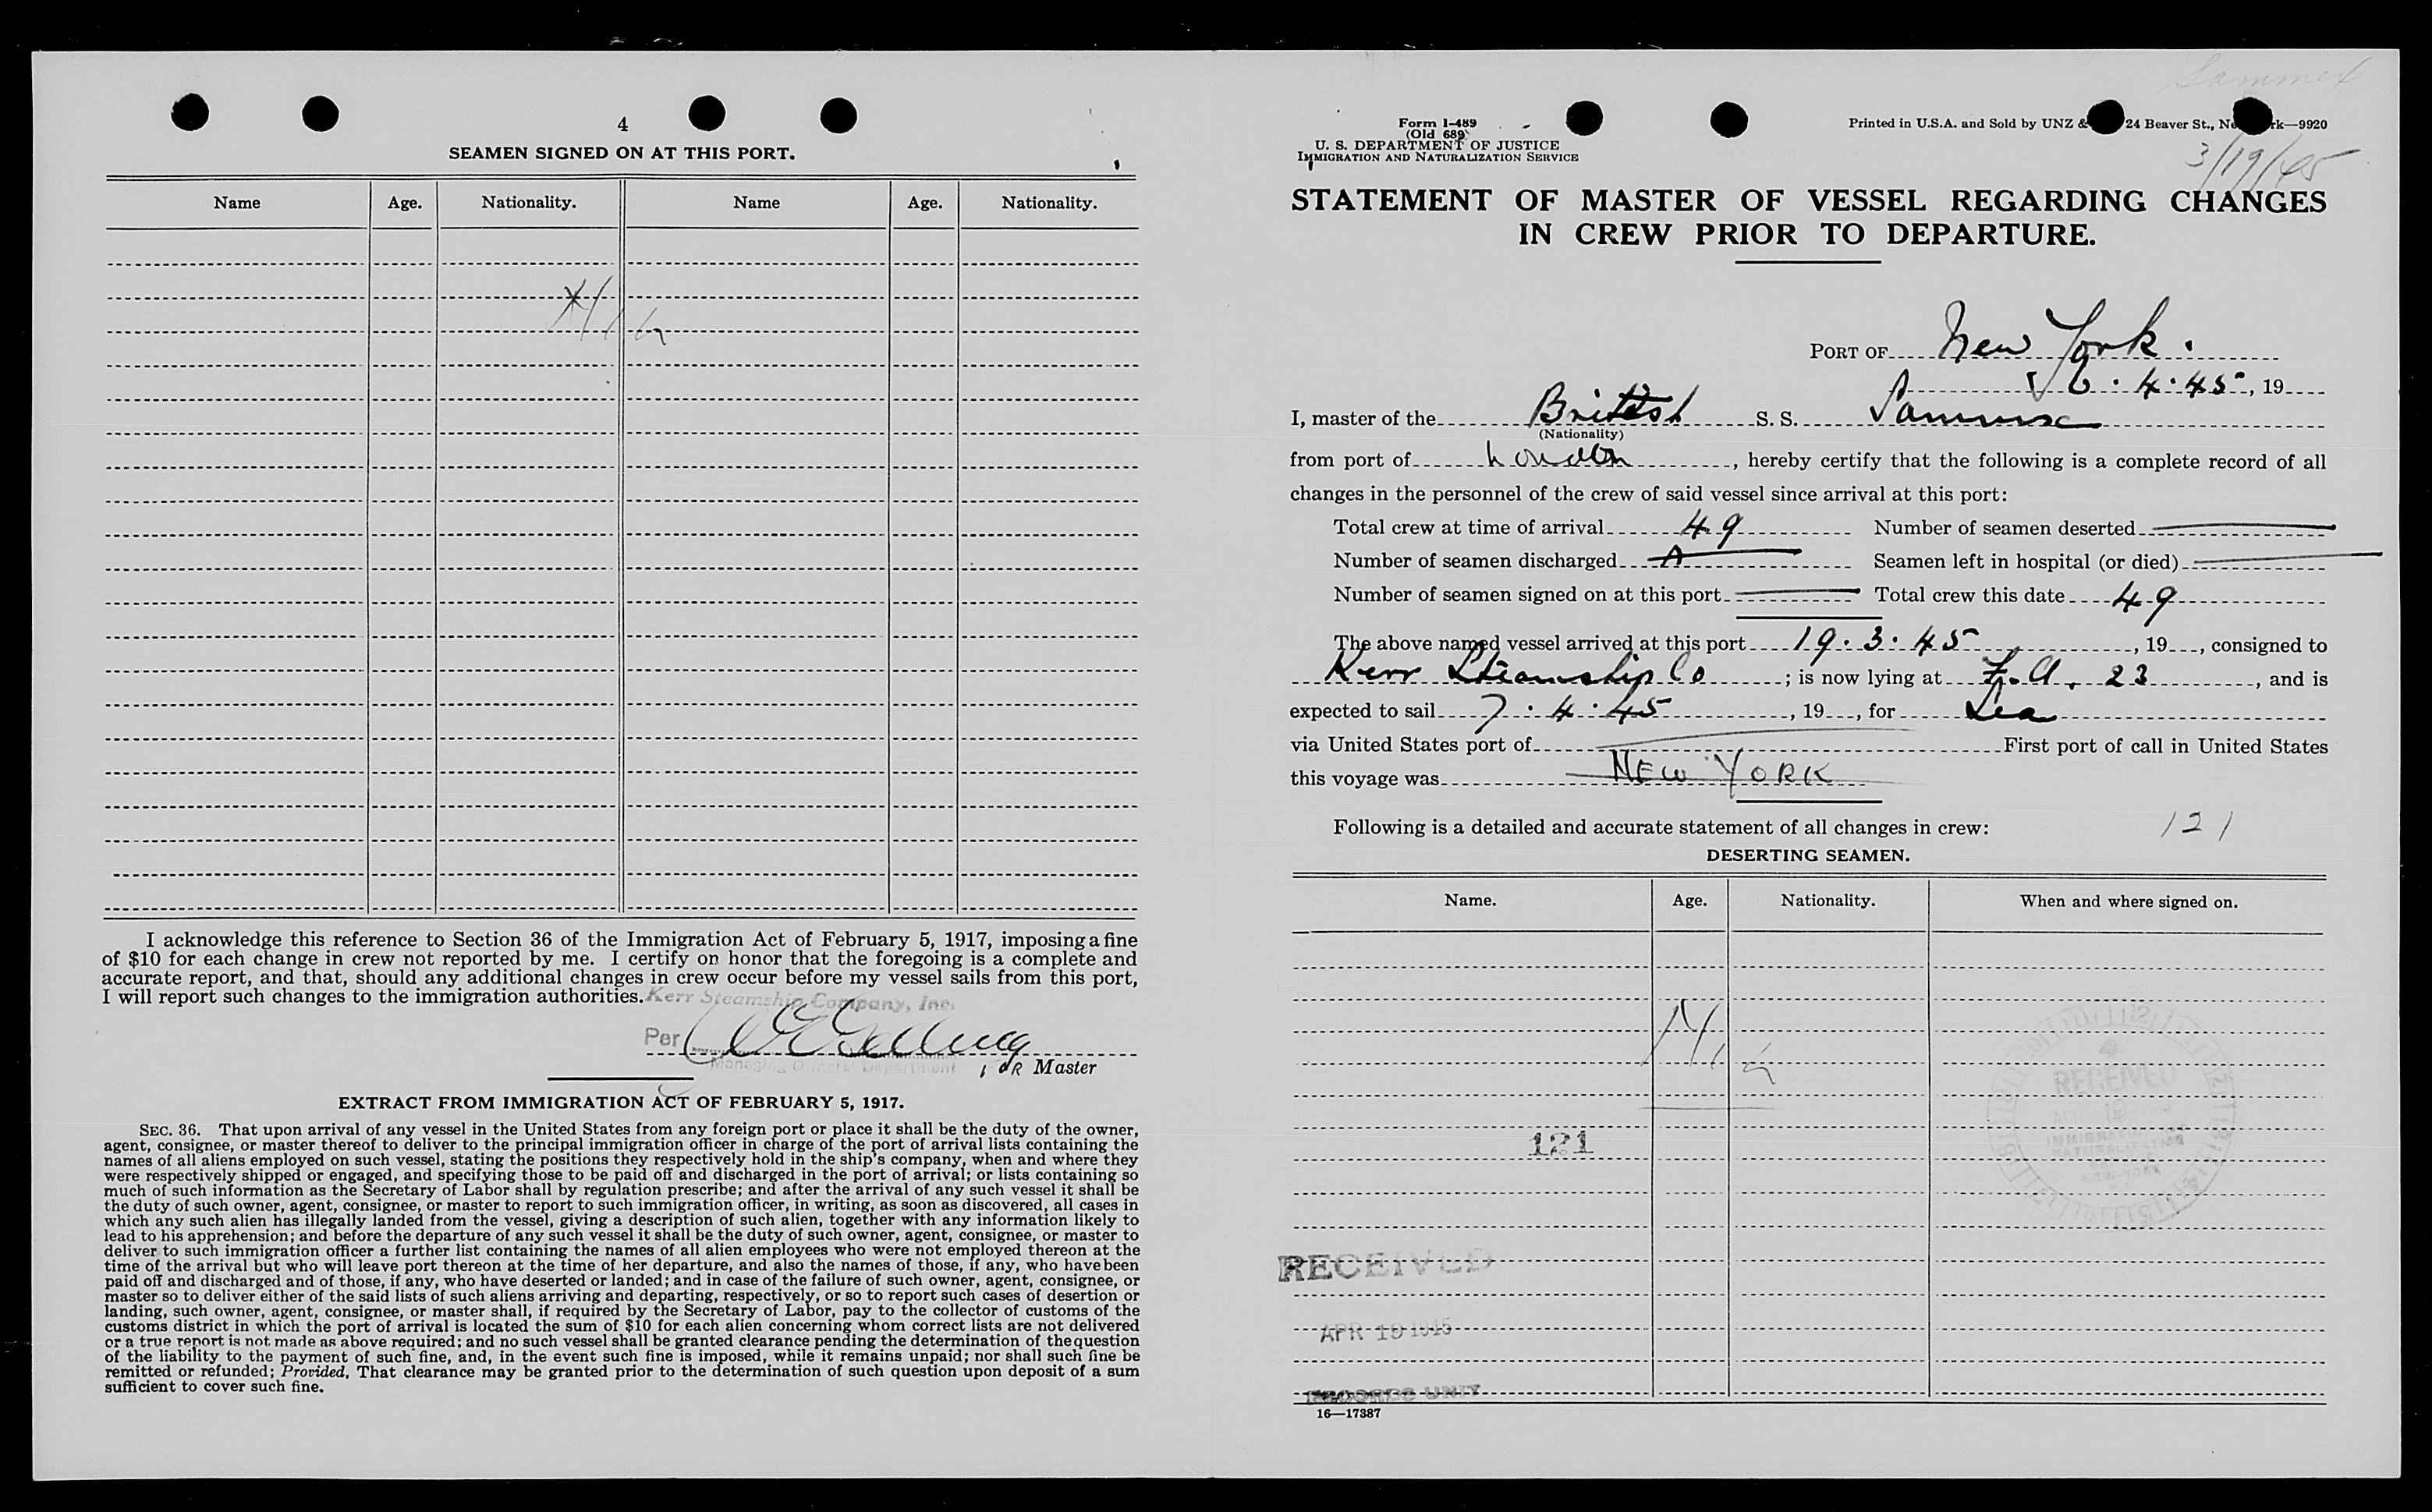 4
SEAMEN SIGNED ON AT THIS PORT.
Name Age. Nationality. Name Age. Nationality.
I acknowledge this reference to Section 36 of the Immigration Act of February 5, 1917, imposing a fine
of $10 for each change in crew not reported by me. I certify on honor that the foregoing is a complete and
accurate report, and that, should any additional changes in crew occur before my vessel sails from this port,
I will report such changes to the immigration authorities. Kerr Steamship Company, Inc.
Per
Managing Owners' Department
Master
EXTRACT FROM IMMIGRATION ACT OF FEBRUARY 5, 1917.
SEC. 36. That upon arrival of any vessel in the United States from any foreign port or place it shall be the duty of the owner,
agent, consignee, or master thereof to deliver to the principal immigration officer in charge of the port of arrival lists containing the
names of all aliens employed on such vessel, stating the positions they respectively hold in the ship's company, when and where they
were respectively shipped or engaged, and specifying those to be paid off and discharged in the port of arrival; or lists containing so
much of such information as the Secretary of Labor shall by regulation prescribe; and after the arrival of any such vessel it shall be
the duty of such owner, agent, consignee, or master to report to such immigration officer, in writing, as soon as discovered, all cases in
which any such alien has illegally landed from the vessel, giving a description of such alien, together with any information likely to
lead to his apprehension; and before the departure of any such vessel it shall be the duty of such owner, agent, consignee, or master to
deliver to such immigration officer a further list containing the names of all alien employees who were not employed thereon at the
time of the arrival but who will leave port thereon at the time of her departure, and also the names of those, if any, who have been
paid off and discharged and of those, if any, who have deserted or landed; and in case of the failure of such owner, agent, consignee, or
master so to deliver either of the said lists of such aliens arriving and departing, respectively, or so to report such cases of desertion or
landing, such owner, agent, consignee, or master shall, if required by the Secretary of Labor, pay to the collector of customs of the
customs district in which the port of arrival is located the sum of $10 for each alien concerning whom correct lists are not delivered
or a true report is not made as above required; and no such vessel shall be granted clearance pending the determination of the question
of the liability to the payment of such fine, and, in the event such fine is imposed, while it remains unpaid; nor shall such fine be
remitted or refunded; Provided, That clearance may be granted prior to the determination of such question upon deposit of a sum
sufficient to cover such fine.
Form I-489
(Old 689)
U. S. DEPARTMENT OF JUSTICE
IMMIGRATION AND NATURALIZATION SERVICE
Printed in U.S.A. and Sold by UNZ & 24 Beaver St., 9920
3/19/45
STATEMENT OF MASTER OF VESSEL REGARDING CHANGES
IN CREW PRIOR TO DEPARTURE.
PORT OF New York.
6.4.45, 19
I, master of the British S. S.
(Nationality)
from port of London, hereby certify that the following is a complete record of all
changes in the personnel of the crew of said vessel since arrival at this port:
Total crew at time of arrival 49 Number of seamen deserted
Number of seamen discharged Seamen left in hospital (or died)
Number of seamen signed on at this port Total crew this date 49
The above named vessel arrived at this port 19.3.45, 19, consigned to
Kerr Steamship Co; is now lying at F.A. 23, and is
expected to sail 7.4.45, 19, for Sea
via United States port of First port of call in United States
this voyage was NEW YORK
Following is a detailed and accurate statement of all changes in crew: 121
DESERTING SEAMEN.
Name. Age. Nationality. When and where signed on.
RECEIVED
121
RECEIVED
APR 19 1945
RECORDS UNIT
16—17387